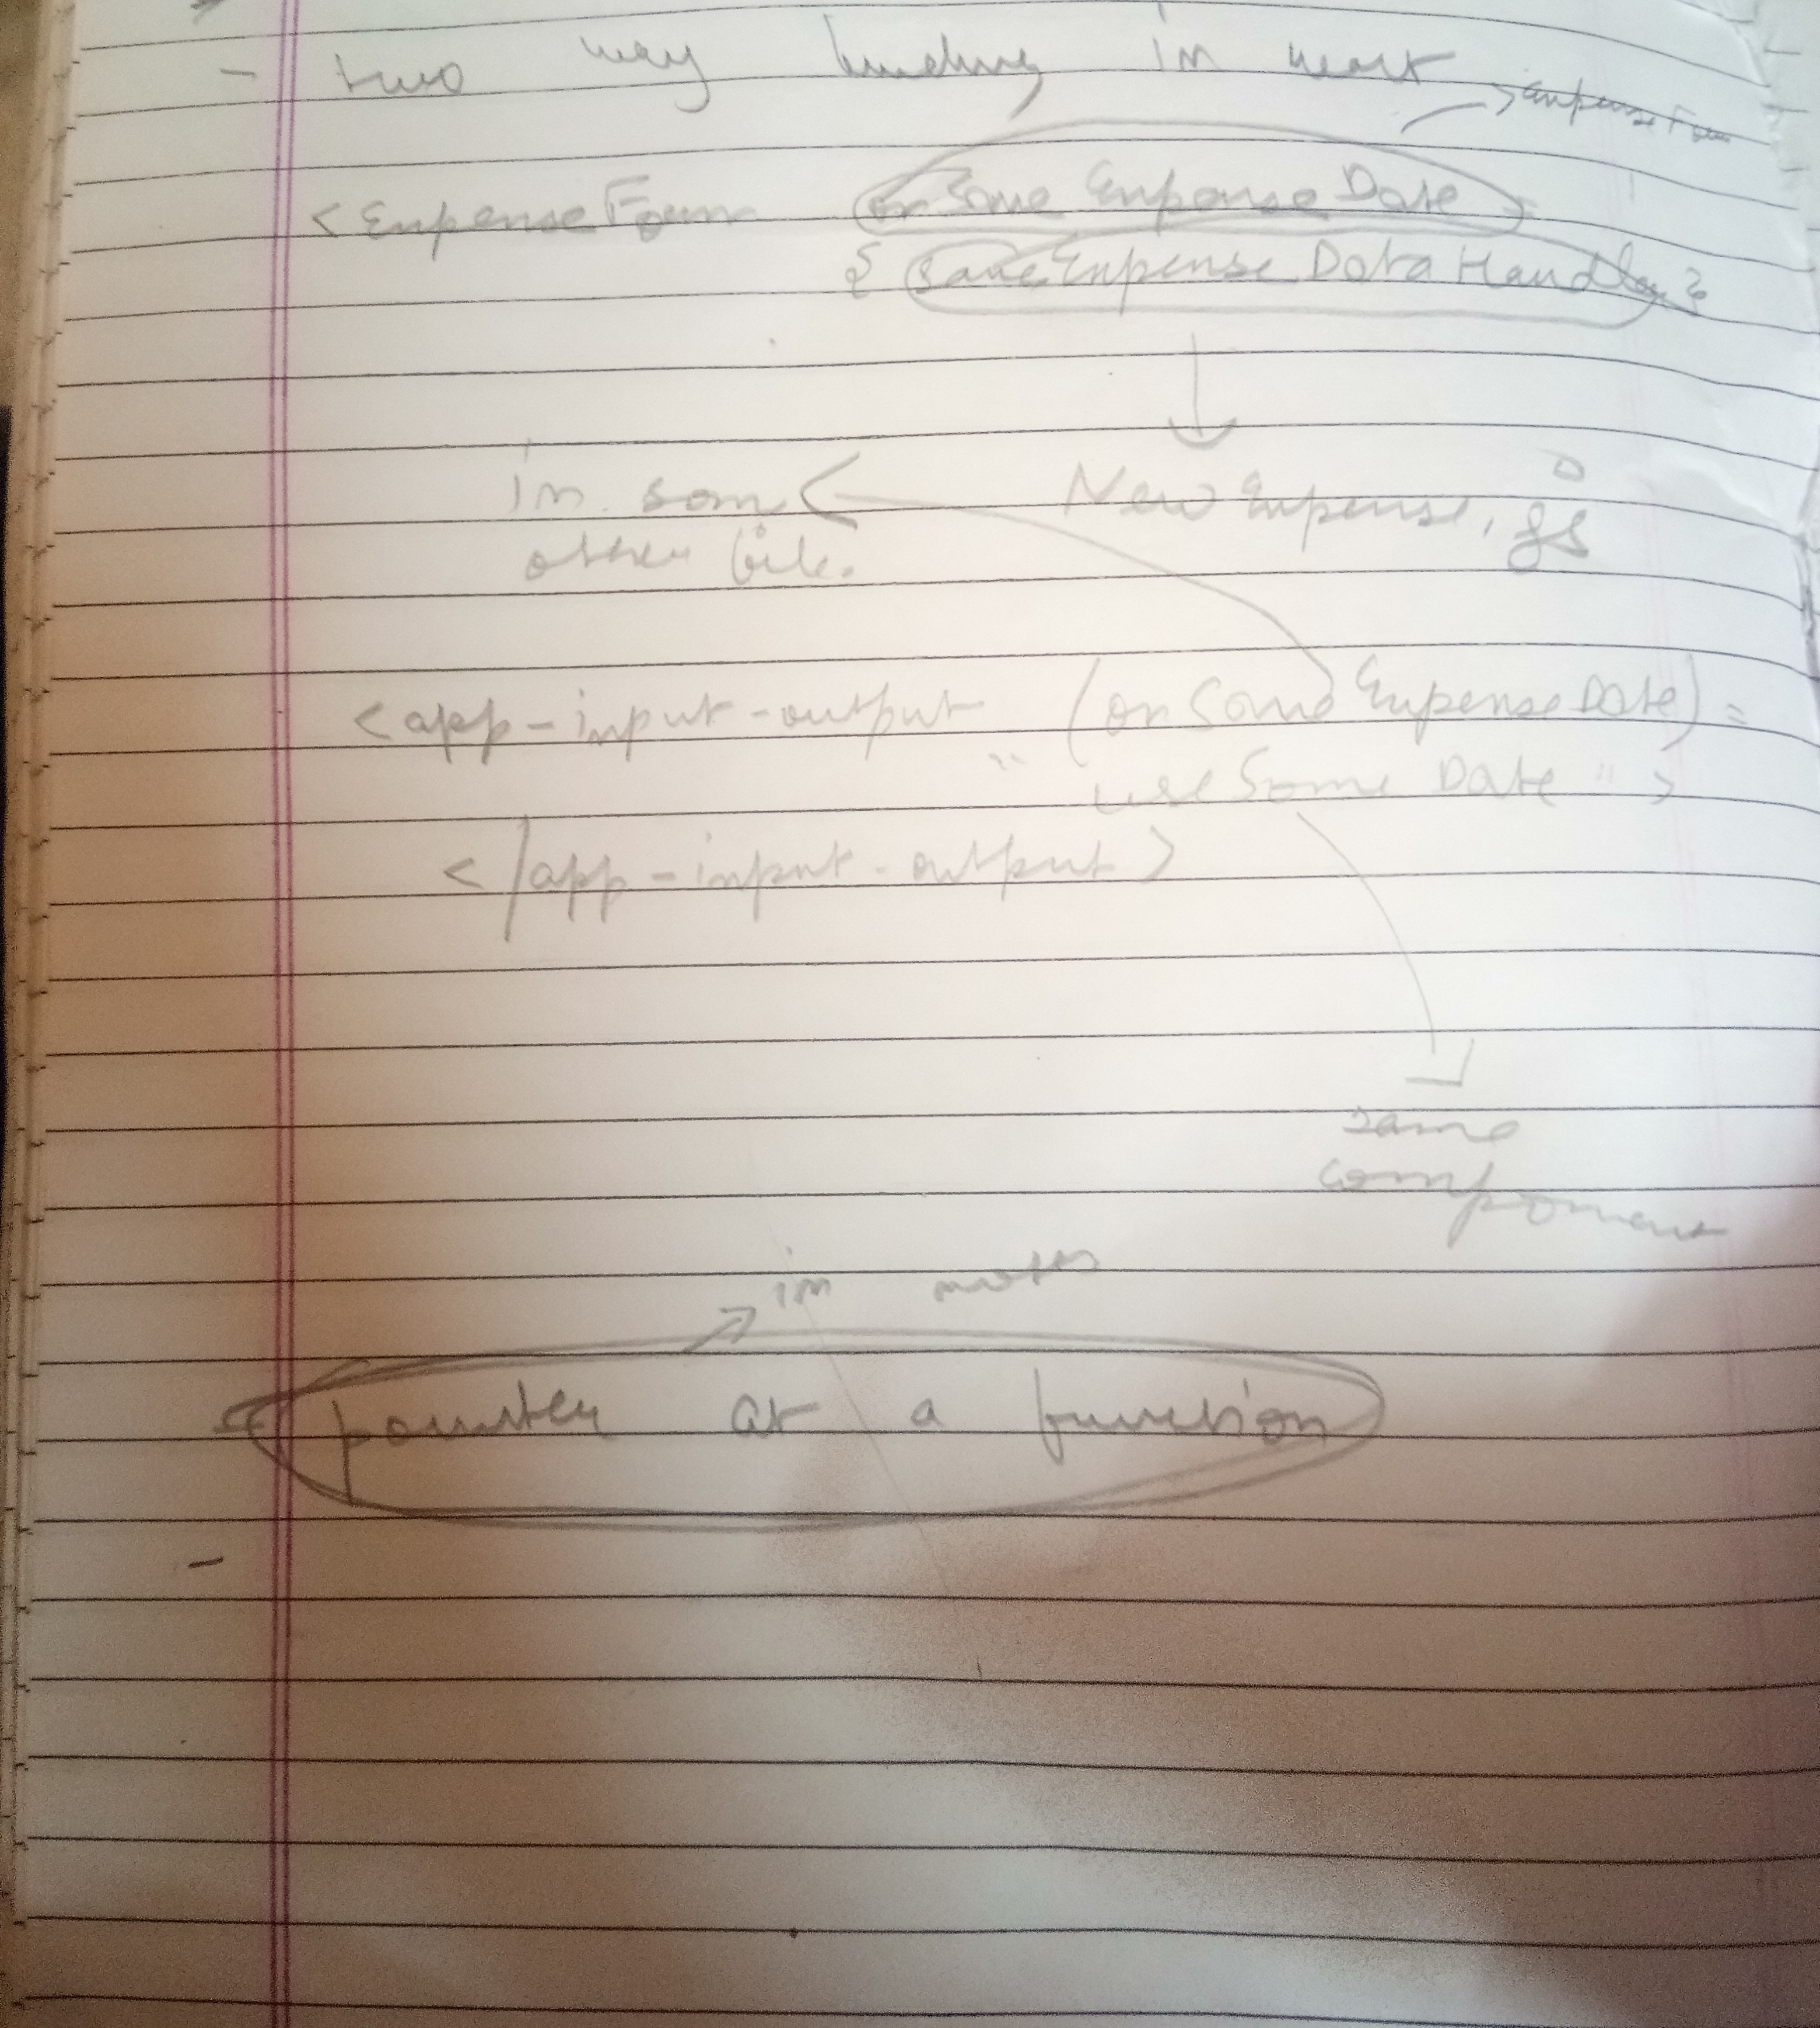 - two way binding in react
→ Expense Form
< Expense Form (on Some Expense Date =
{ Save Expense Data Handler }
in som New Expense. js
other file.
< app - input - output (on Some Expense Date) =
" use Some Date " >
< / app - input - output >
same
component
in
pointer at a function
-